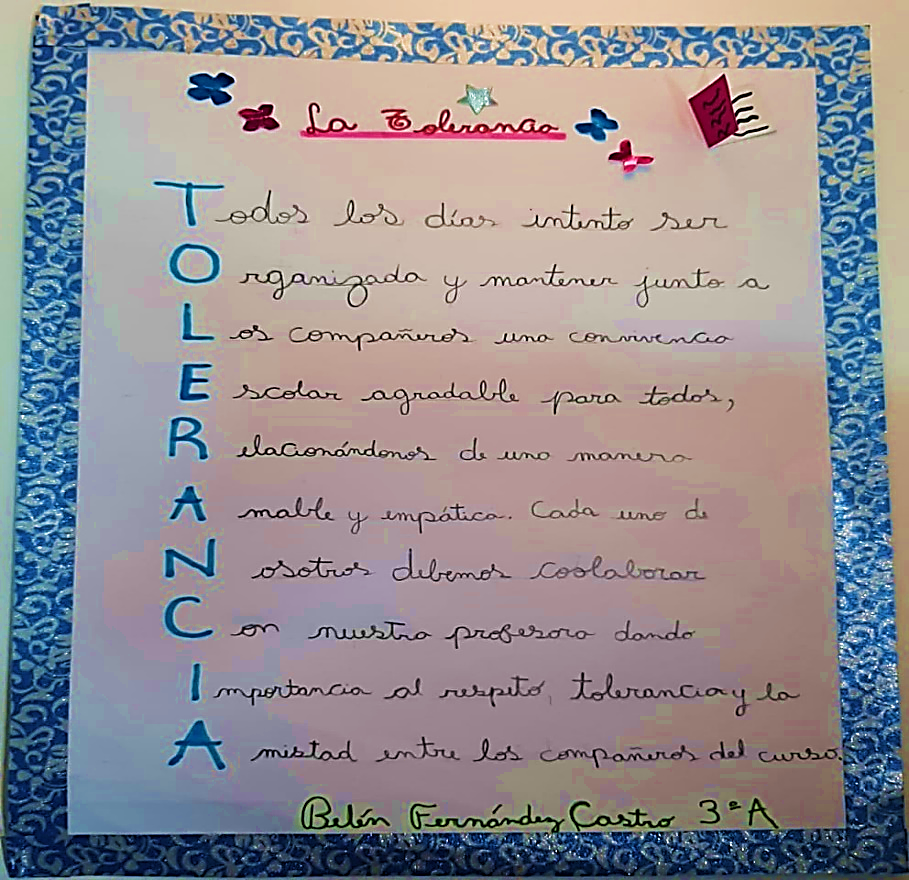 La Tolerancia
Todos los días intento ser
Organizada y mantener junto a
Los compañeros una convivencia
Escolar agradable para todos,
Relacionándonos de una manera
Amable y empática. Cada uno de
Nosotros debemos coolaborar
Con nuestra profesora dando
Importancia al respeto, tolerancia y la
Amistad entre los compañeros del curso.
Belén Fernández Castro 3ºA